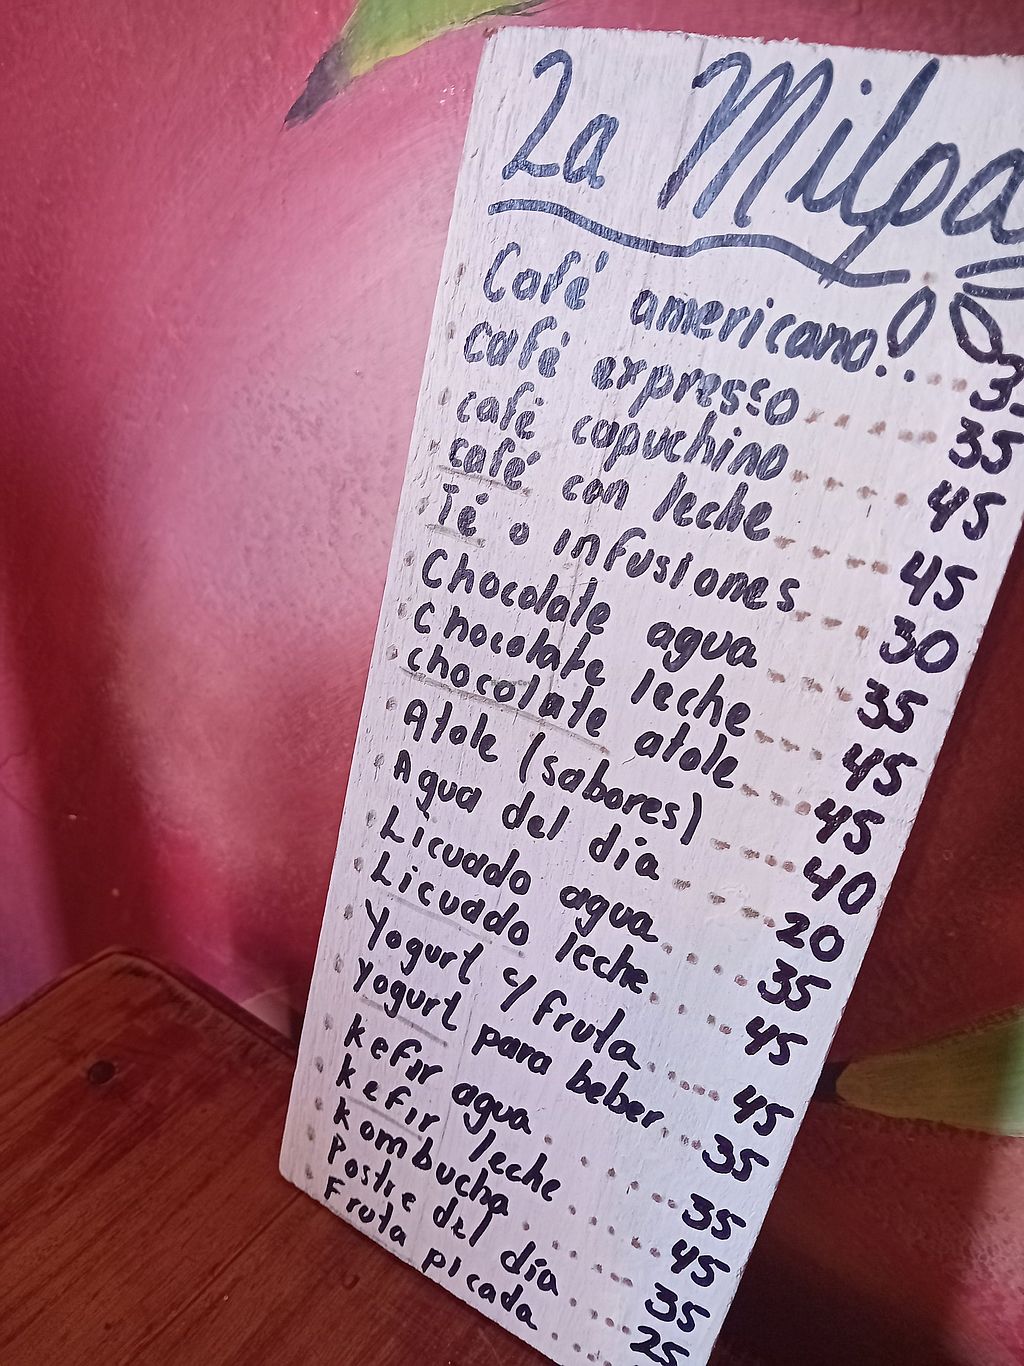 La Milpa
Café americano..
Café expresso.......35
café capuchino......45
café con leche......45
Té o infusiones.....30
Chocolate agua.....35
Chocolate leche.....45
chocolate atole.....45
Atole (sabores).....40
Agua del día.....20
Licuado agua.....35
Licuado leche.....45
Yogurt c/fruta.....45
Yogurt para beber.....35
kefir agua.....35
kefir leche.....45
Kombucha.....35
Postre del día.....25
Fruta picada.